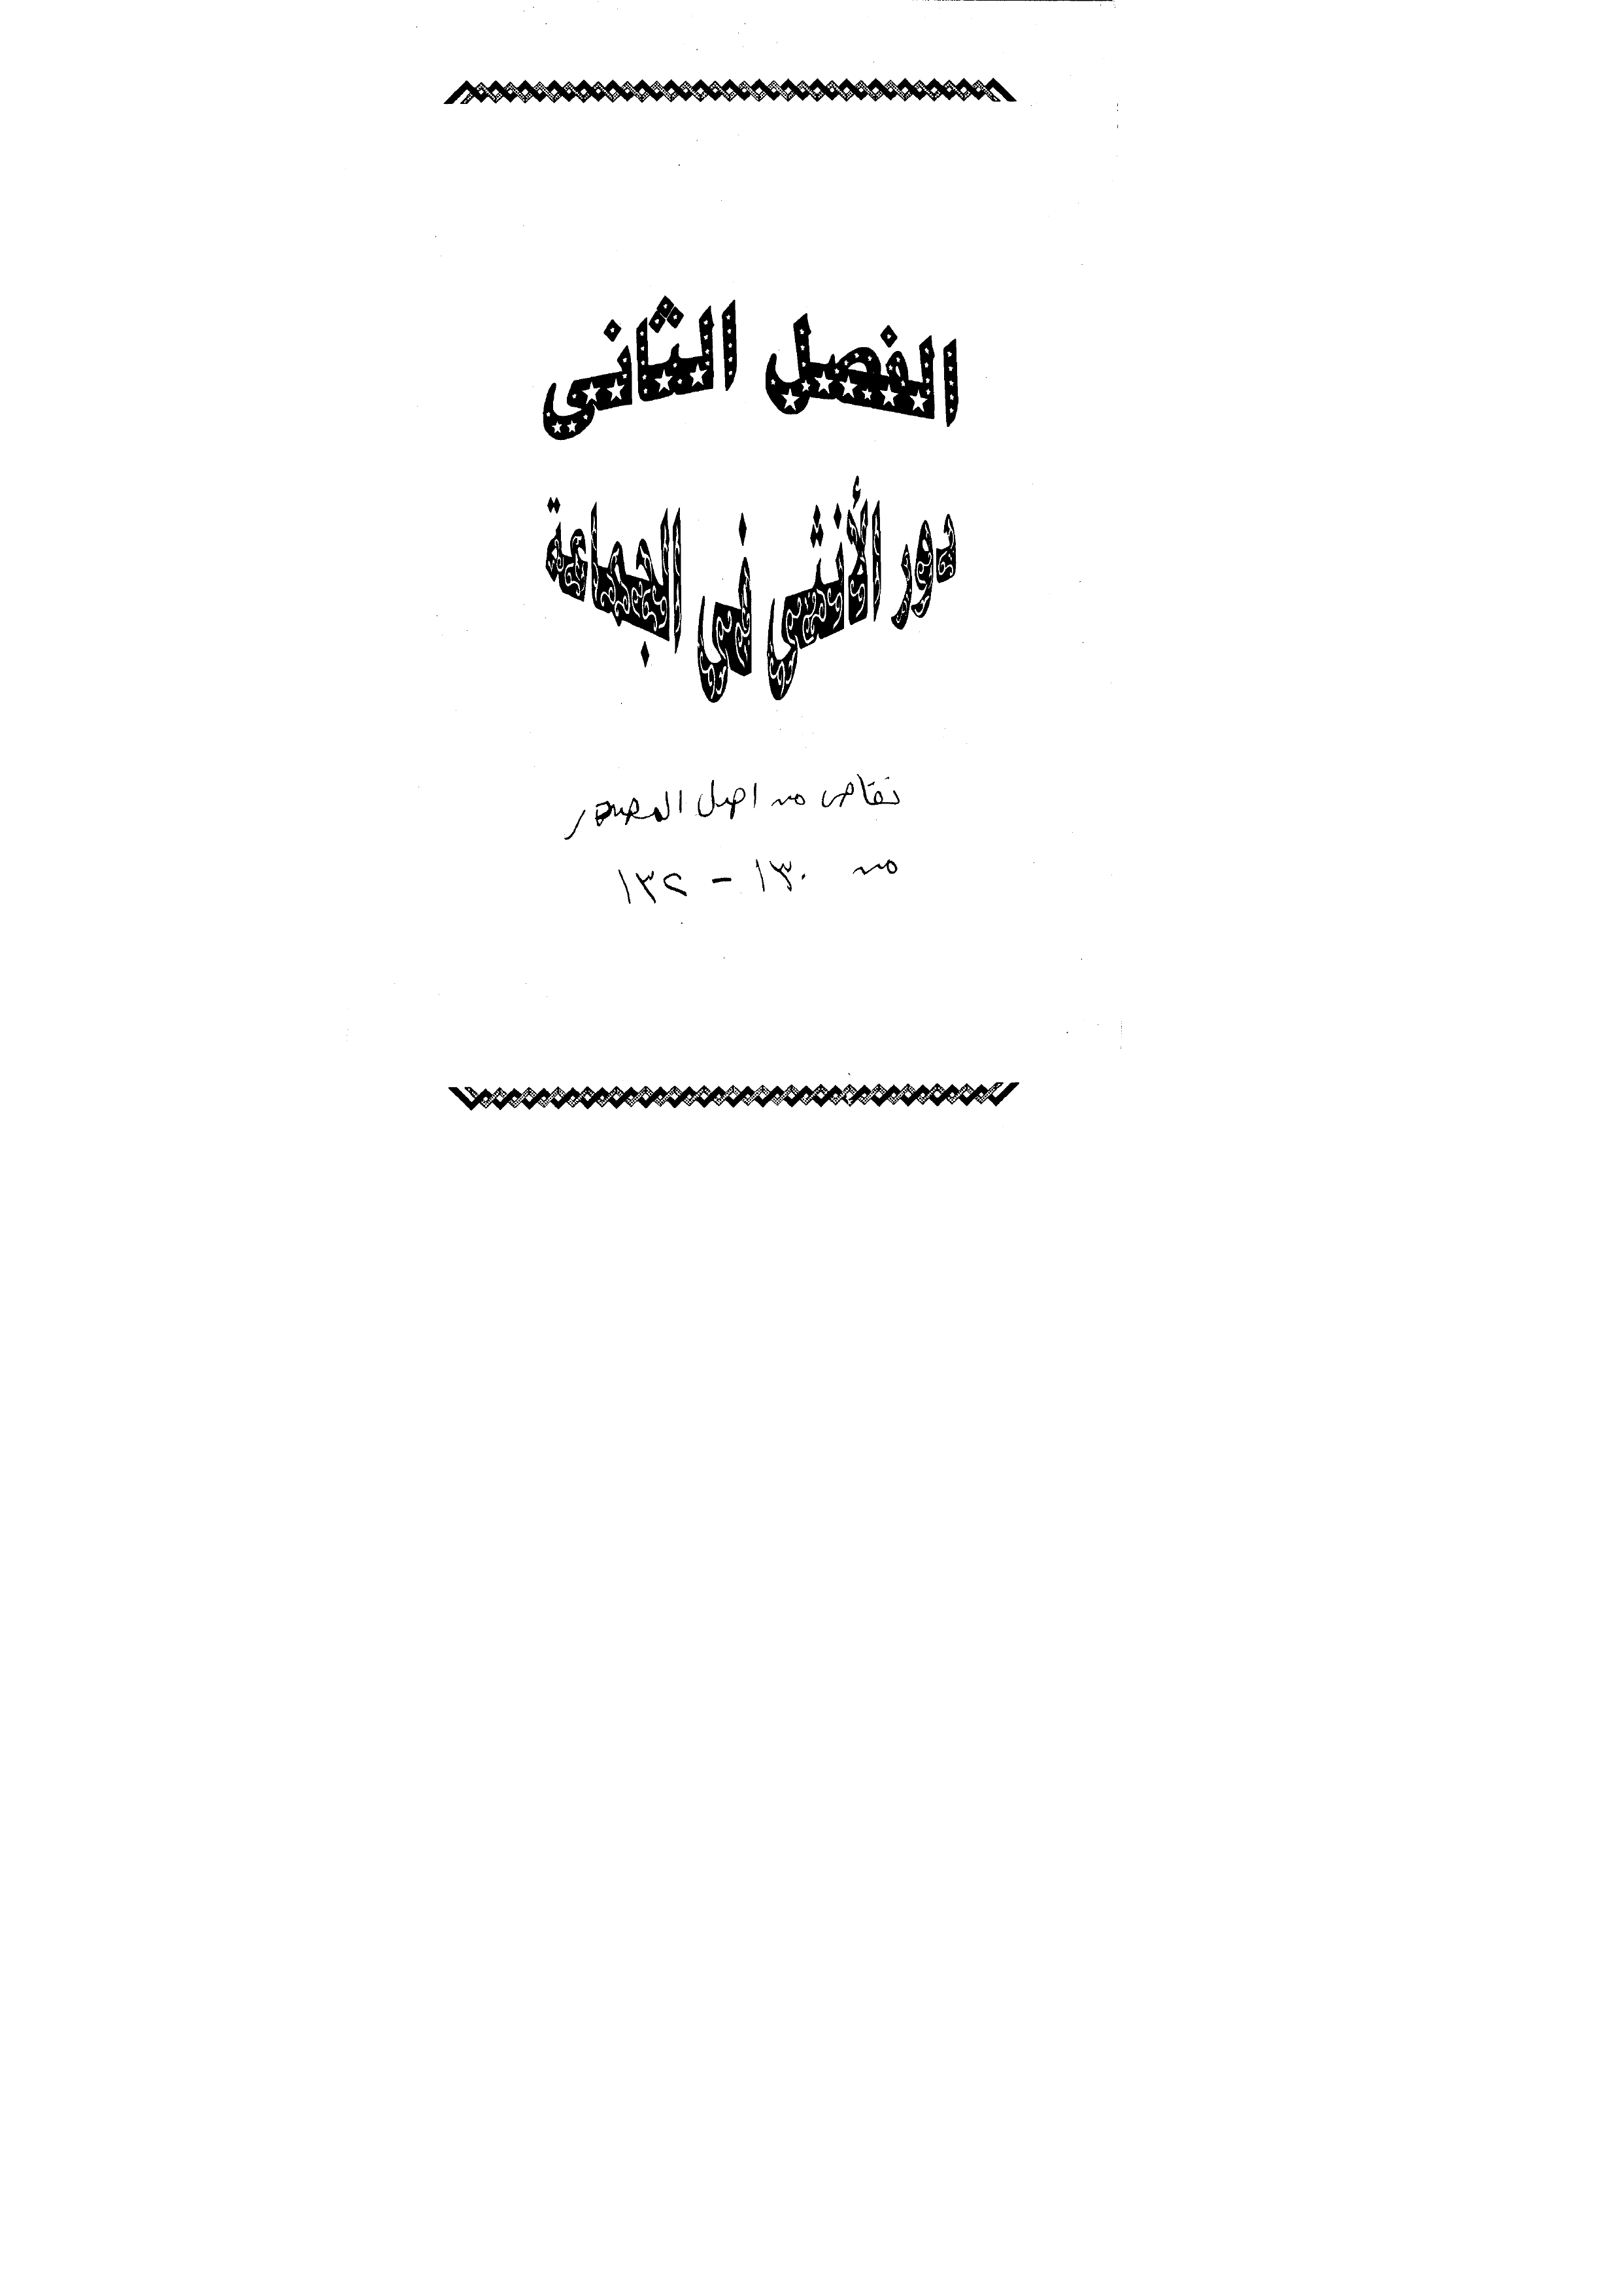 الفصل الثاني
دور الأنثى في الجماعة
نقاص من اصل المصدر
من ١٣٠ - ١٣٢